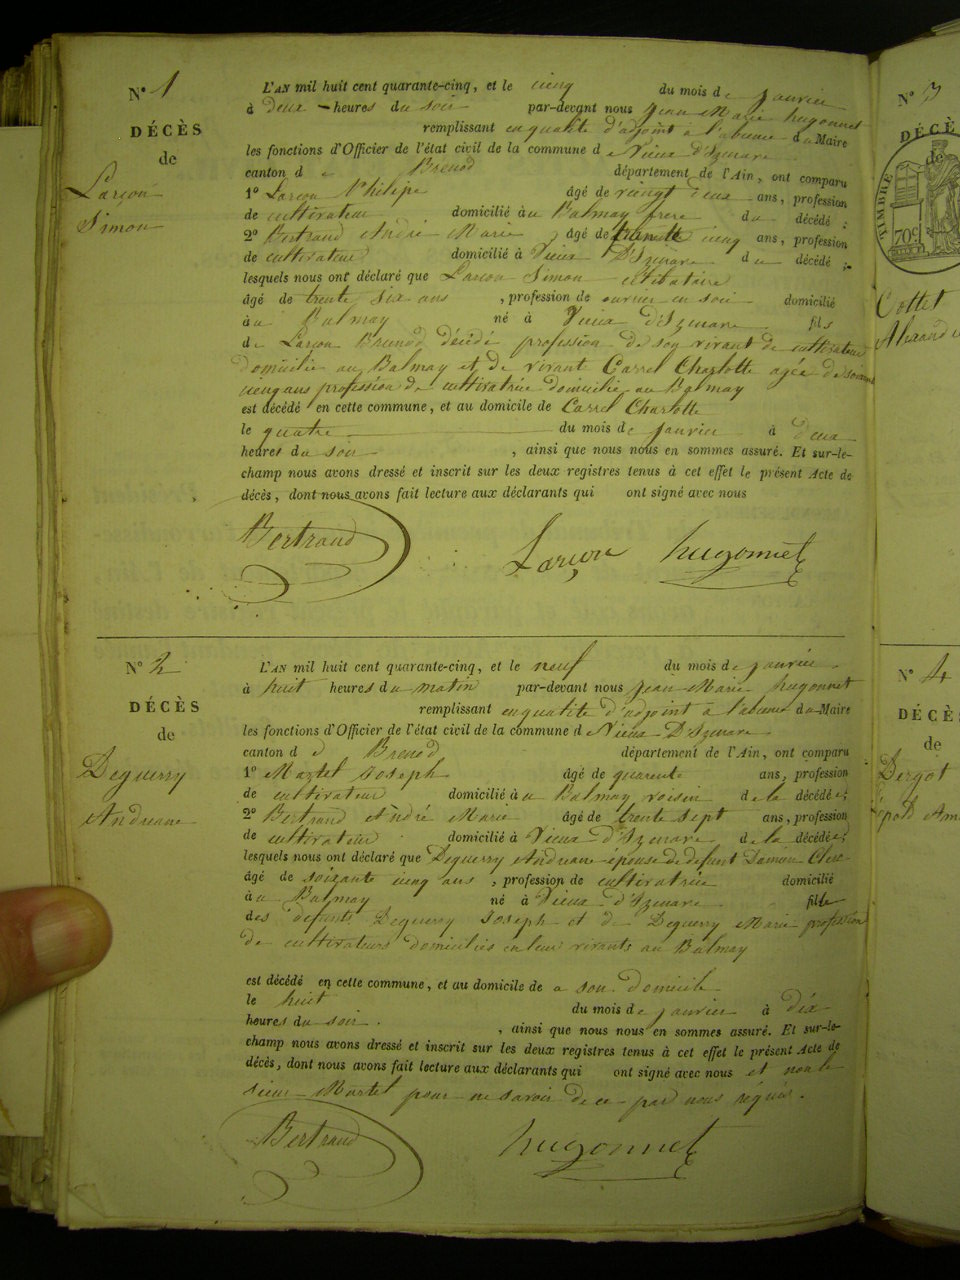 N° 1
DÉCÈS
de
Larçon
Simon
L'AN mil huit cent quarante-cinq, et le cinq du mois de janvier
à deux heures du soir par-devant nous Jean Marie hugonnet
remplissant en qualité d'adjoint à l'absence du Maire
les fonctions d'Officier de l'état civil de la commune de Vieux d'Izenave
canton de Brenod département de l'Ain, ont comparu
1° Larçon Philipe âgé de vingt deux ans, profession
de cultivateur domicilié au Balmay frere du décédé;
2° Bertrand André Marie âgé de trente cinq ans, profession
de cultivateur domicilié à Vieux D'Izenave du décédé;
lesquels nous ont déclaré que Larçon Simon célibataire
âgé de trente six ans, profession de ouvrier en soie domicilié
au Balmay né à Vieux d'Izenave fils
de Larçon décédé profession de son vivant de cultivateur
domicilié au Balmay et de vivant Carrel Charlotte agée de soixante
cinq ans profession de cultivatrice domicilié au Balmay
est décédé en cette commune, et au domicile de Carrel Charlotte
le quatre du mois de janvier à deux
heures du soir, ainsi que nous nous en sommes assuré. Et sur-le-
champ nous avons dressé et inscrit sur les deux registres tenus à cet effet le présent Acte de
décès, dont nous avons fait lecture aux déclarants qui ont signé avec nous
Bertrand Larçon hugonnet
N° 2
DÉCÈS
de
Deguerry
Andréane
L'AN mil huit cent quarante-cinq, et le neuf du mois de janvier
à huit heures du matin par-devant nous Jean Marie hugonnet
remplissant en qualité d'adjoint à l'absence du Maire
les fonctions d'Officier de l'état civil de la commune de Vieux D'Izenave
canton de Brenod département de l'Ain, ont comparu
1° Martel Joseph âgé de quarente ans, profession
de cultivateur domicilié au Balmay voisin de la décédée;
2° Bertrand André Marie âgé de trente sept ans, profession
de cultivateur domicilié à Vieux d'Izenave de la décédée;
lesquels nous ont déclaré que Deguerry Andréane épouse de defunt
âgé de soixante cinq ans, profession de cultivatrice domicilié
au Balmay né à Vieux d'Izenave fille
des défunts Deguerry Joseph et de Deguerry Marie profession
de cultivateurs domiciliés en leur vivants au Balmay
est décédé en cette commune, et au domicile de a son Domicile
le huit du mois de janvier à dix
heures du soir, ainsi que nous nous en sommes assuré. Et sur-le-
champ nous avons dressé et inscrit sur les deux registres tenus à cet effet le présent Acte de
décès, dont nous avons fait lecture aux déclarants qui ont signé avec nous et non le
sieur Martel pour ne savoir de ce par nous réquis.
Bertrand hugonnet
N° 3
DÉCÈS
de
TIMBRE
70c
Cottet
N° 4
DÉCÈS
de
Dergot